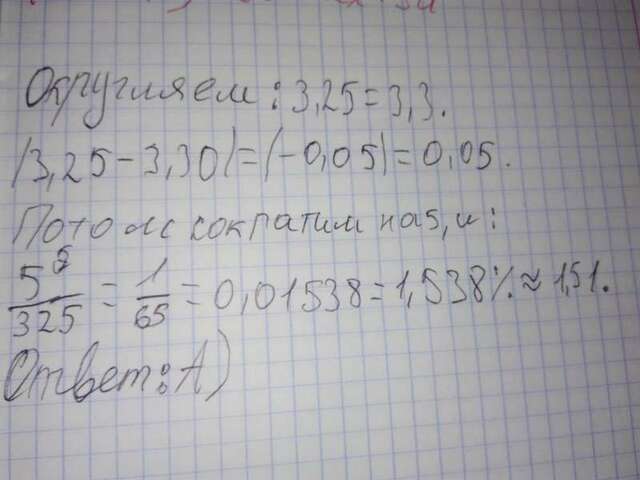 Округляем: 3,25=3,3.
|3,25-3,30|=|-0,05|=0,05.
Потом сократим на 5, и:
5⁵/325 = 1/65 = 0,01538=1,538%≈1,51.
Ответ: А)